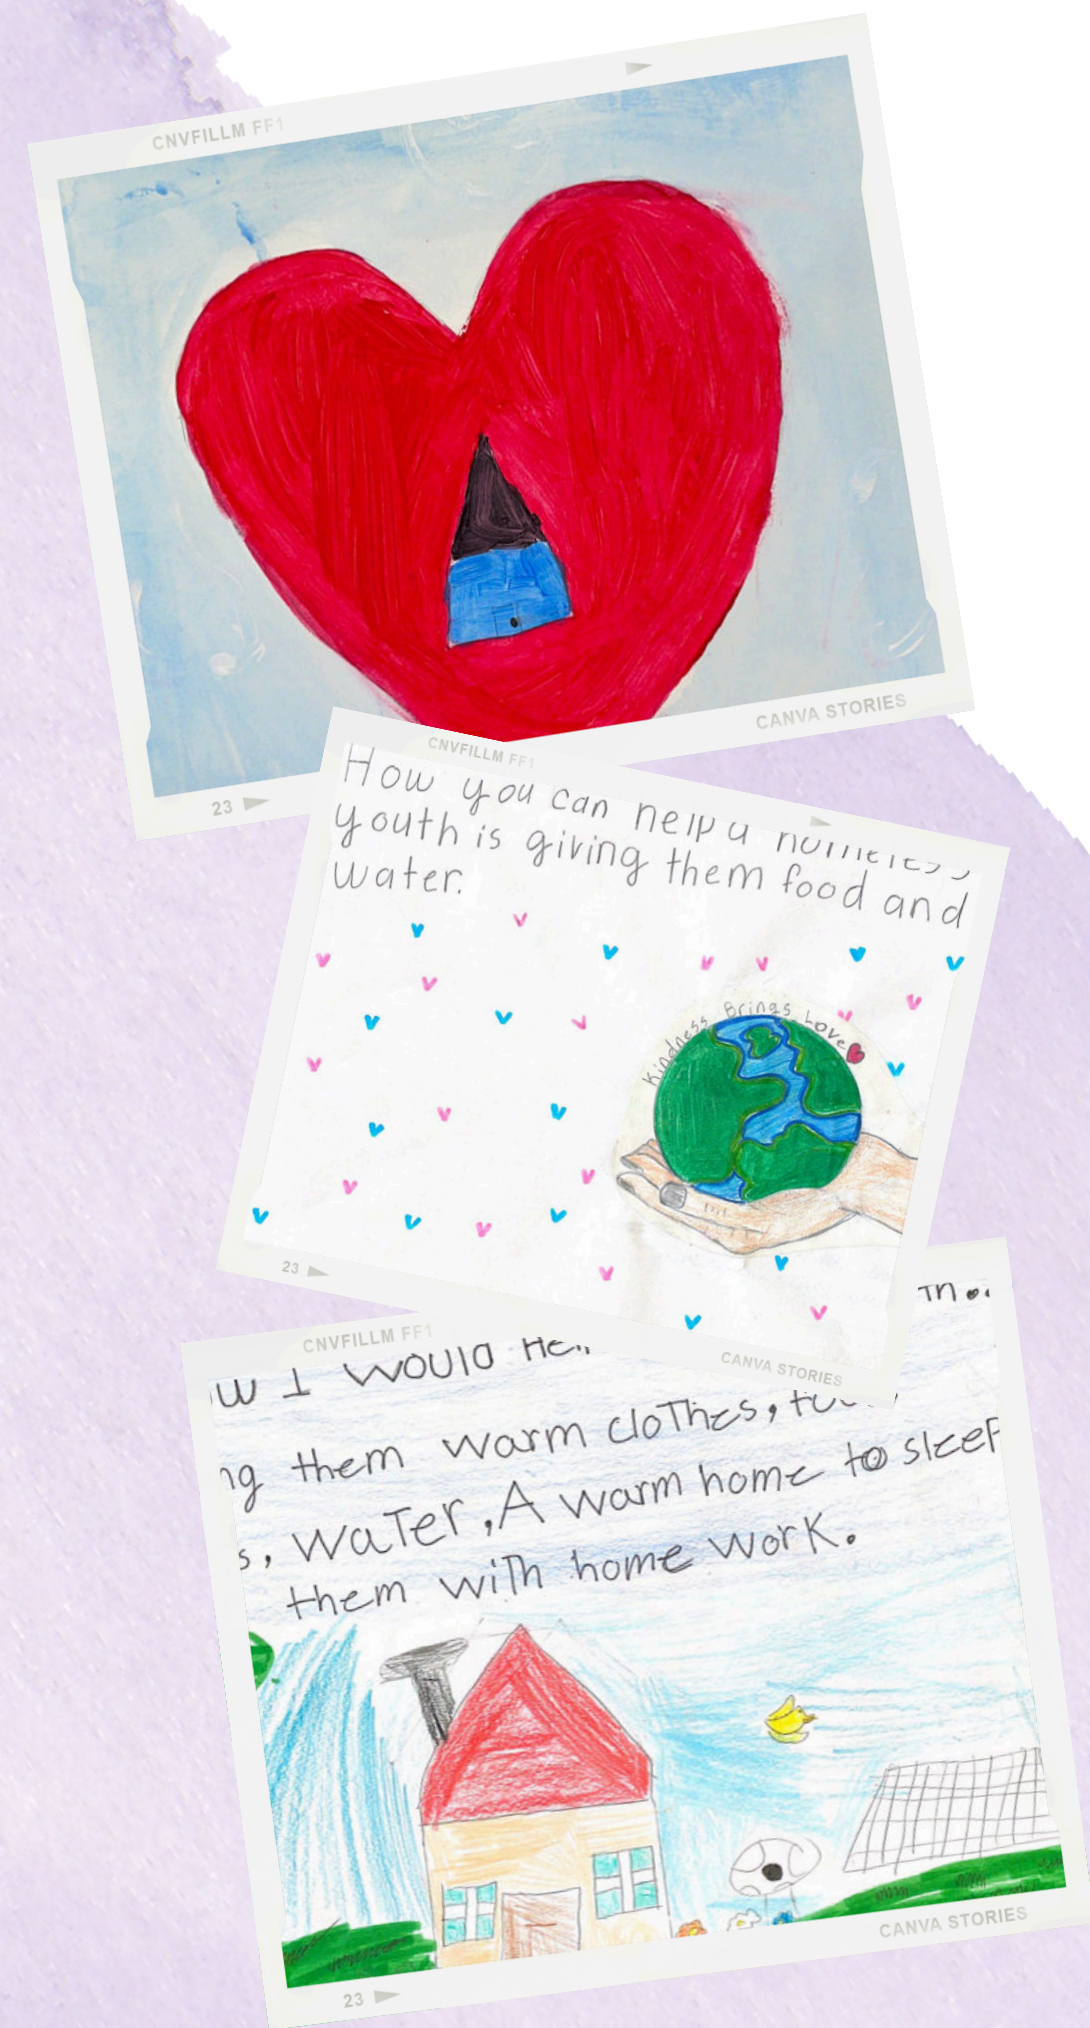 CNVFILLM FF1
23
CANVA STORIES
CNVFILLM FF1
How you can help a homeless
youth is giving them food and
water.
Kindness Brings Love
23
CANVA STORIES
CNVFILLM FF1
I would
them warm clothes,
water, A warm home to sleep
them with home work.
CANVA STORIES
23